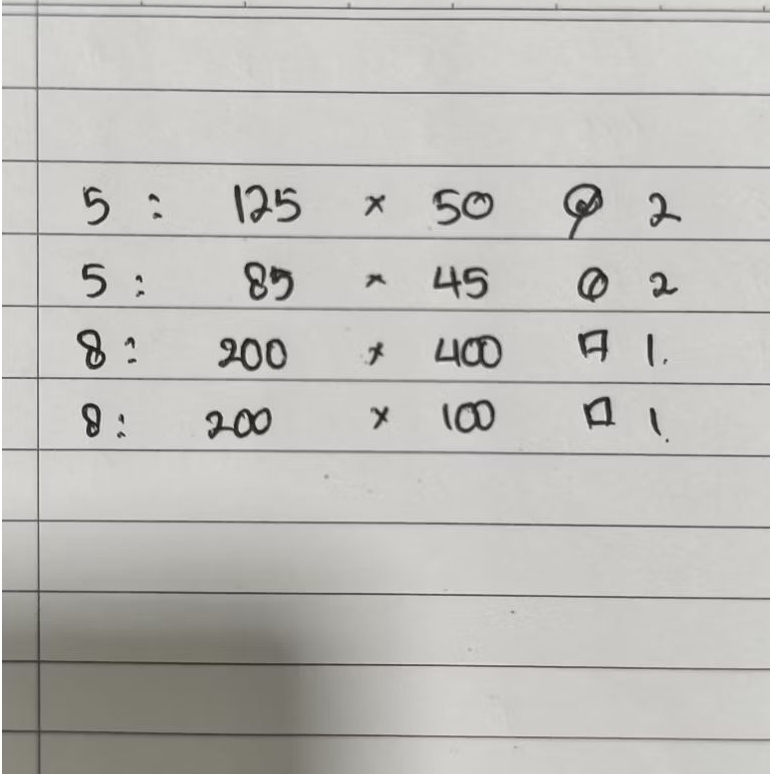 5 : 125 × 50 ∅ 2
5 : 85 × 45 ∅ 2
8 : 200 × 400 □ 1.
8 : 200 × 100 □ 1.